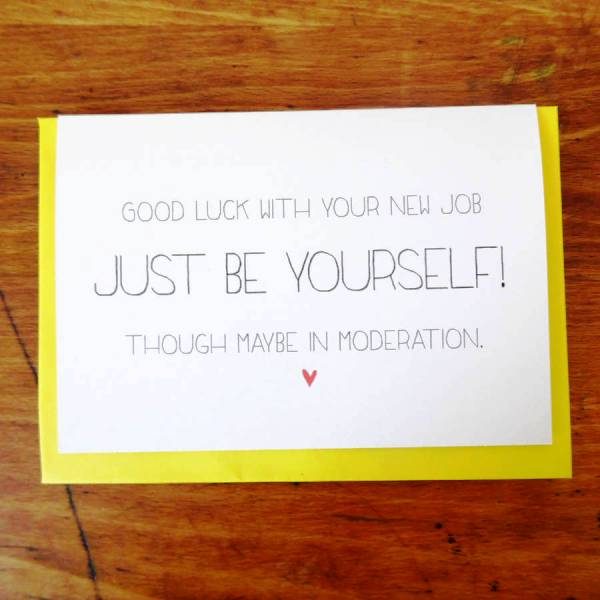 GOOD LUCK WITH YOUR NEW JOB
JUST BE YOURSELF!
THOUGH MAYBE IN MODERATION.